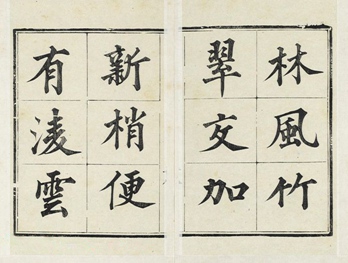 林風竹
翠交加
新梢便
有淩雲